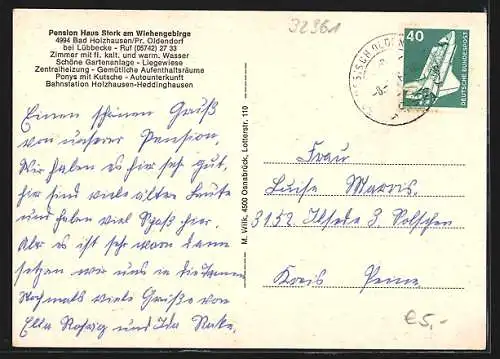 Pension Haus Stork am Wiehengebirge
4994 Bad Holzhausen/Pr. Oldendorf
bei Lübbecke - Ruf (05742) 27 33
Zimmer mit fl. kalt. und warm. Wasser
Schöne Gartenanlage - Liegewiese
Zentralheizung - Gemütliche Aufenthaltsräume
Ponys mit Kutsche - Autounterkunft
Bahnstation Holzhausen-Heddinghausen
32361
40
DEUTSCHE BUNDESPOST
Einen schönen Gruß
von unserer Pension,
Wir haben es hier sehr gut,
hier sind viele alten Leute
und haben viel Spaß hier.
Aber es ist sehr warm dann
setzen wir uns in die
Nochmals viele Grüße von
Ella und Ida
M. Villik, 4500 Osnabrück, Lotterstr. 110
Frau
Luise
3152 Ilsede 3
Kreis Peine
€5,-